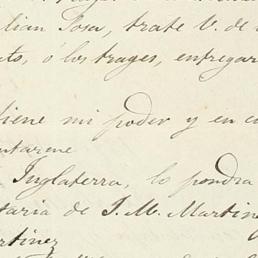 lian Sosa, trate V. de
to, ó los trages, entregar
tiene mi poder y en c
ntarme
Inglaterra, lo pondra
taria de J. M. Martin
rtinez